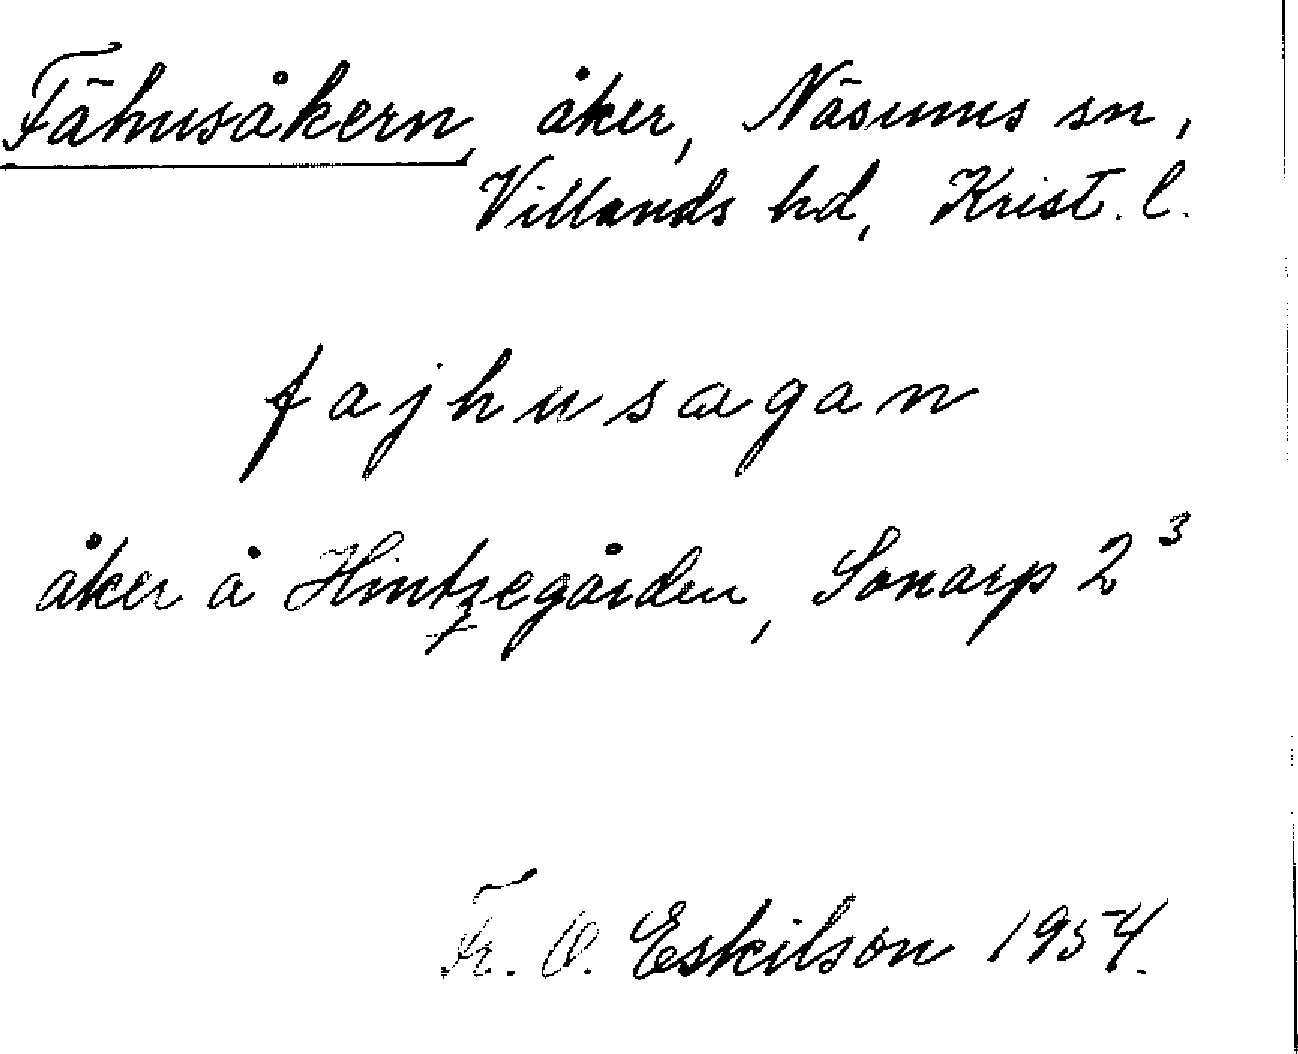 Fähusåkern, åker, Näsums sn,
Villands hd, Krist. l.
fajhusagan
åker å Hintzegården, Sonarp 2³
Fr. O. Eskilson 1954.